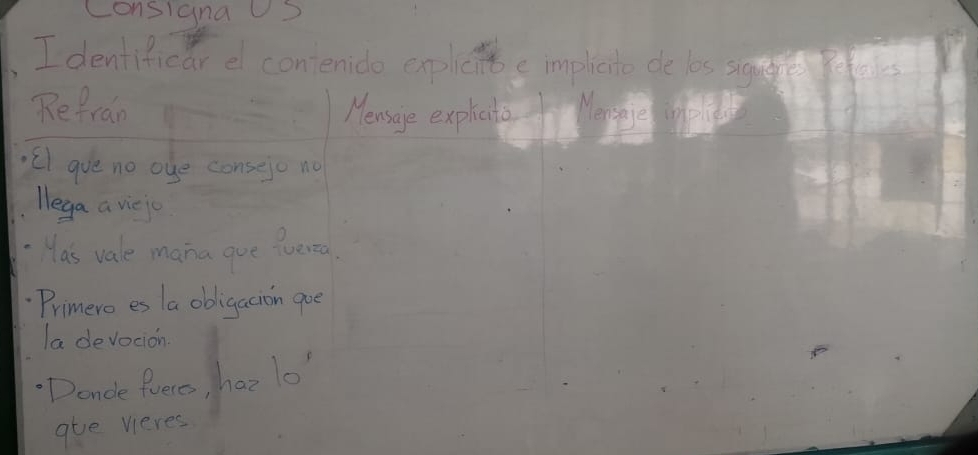 Consigna 03
Identificar el contenido explicito e implicito de los siguientes Refranes
Refrán Mensaje explicito Mensaje implicito
• El que no oye consejo no
llega a viejo.
• Más vale maña que fuerza.
• Primero es la obligación que
la devoción.
• Donde fueres, haz lo
que vieres.